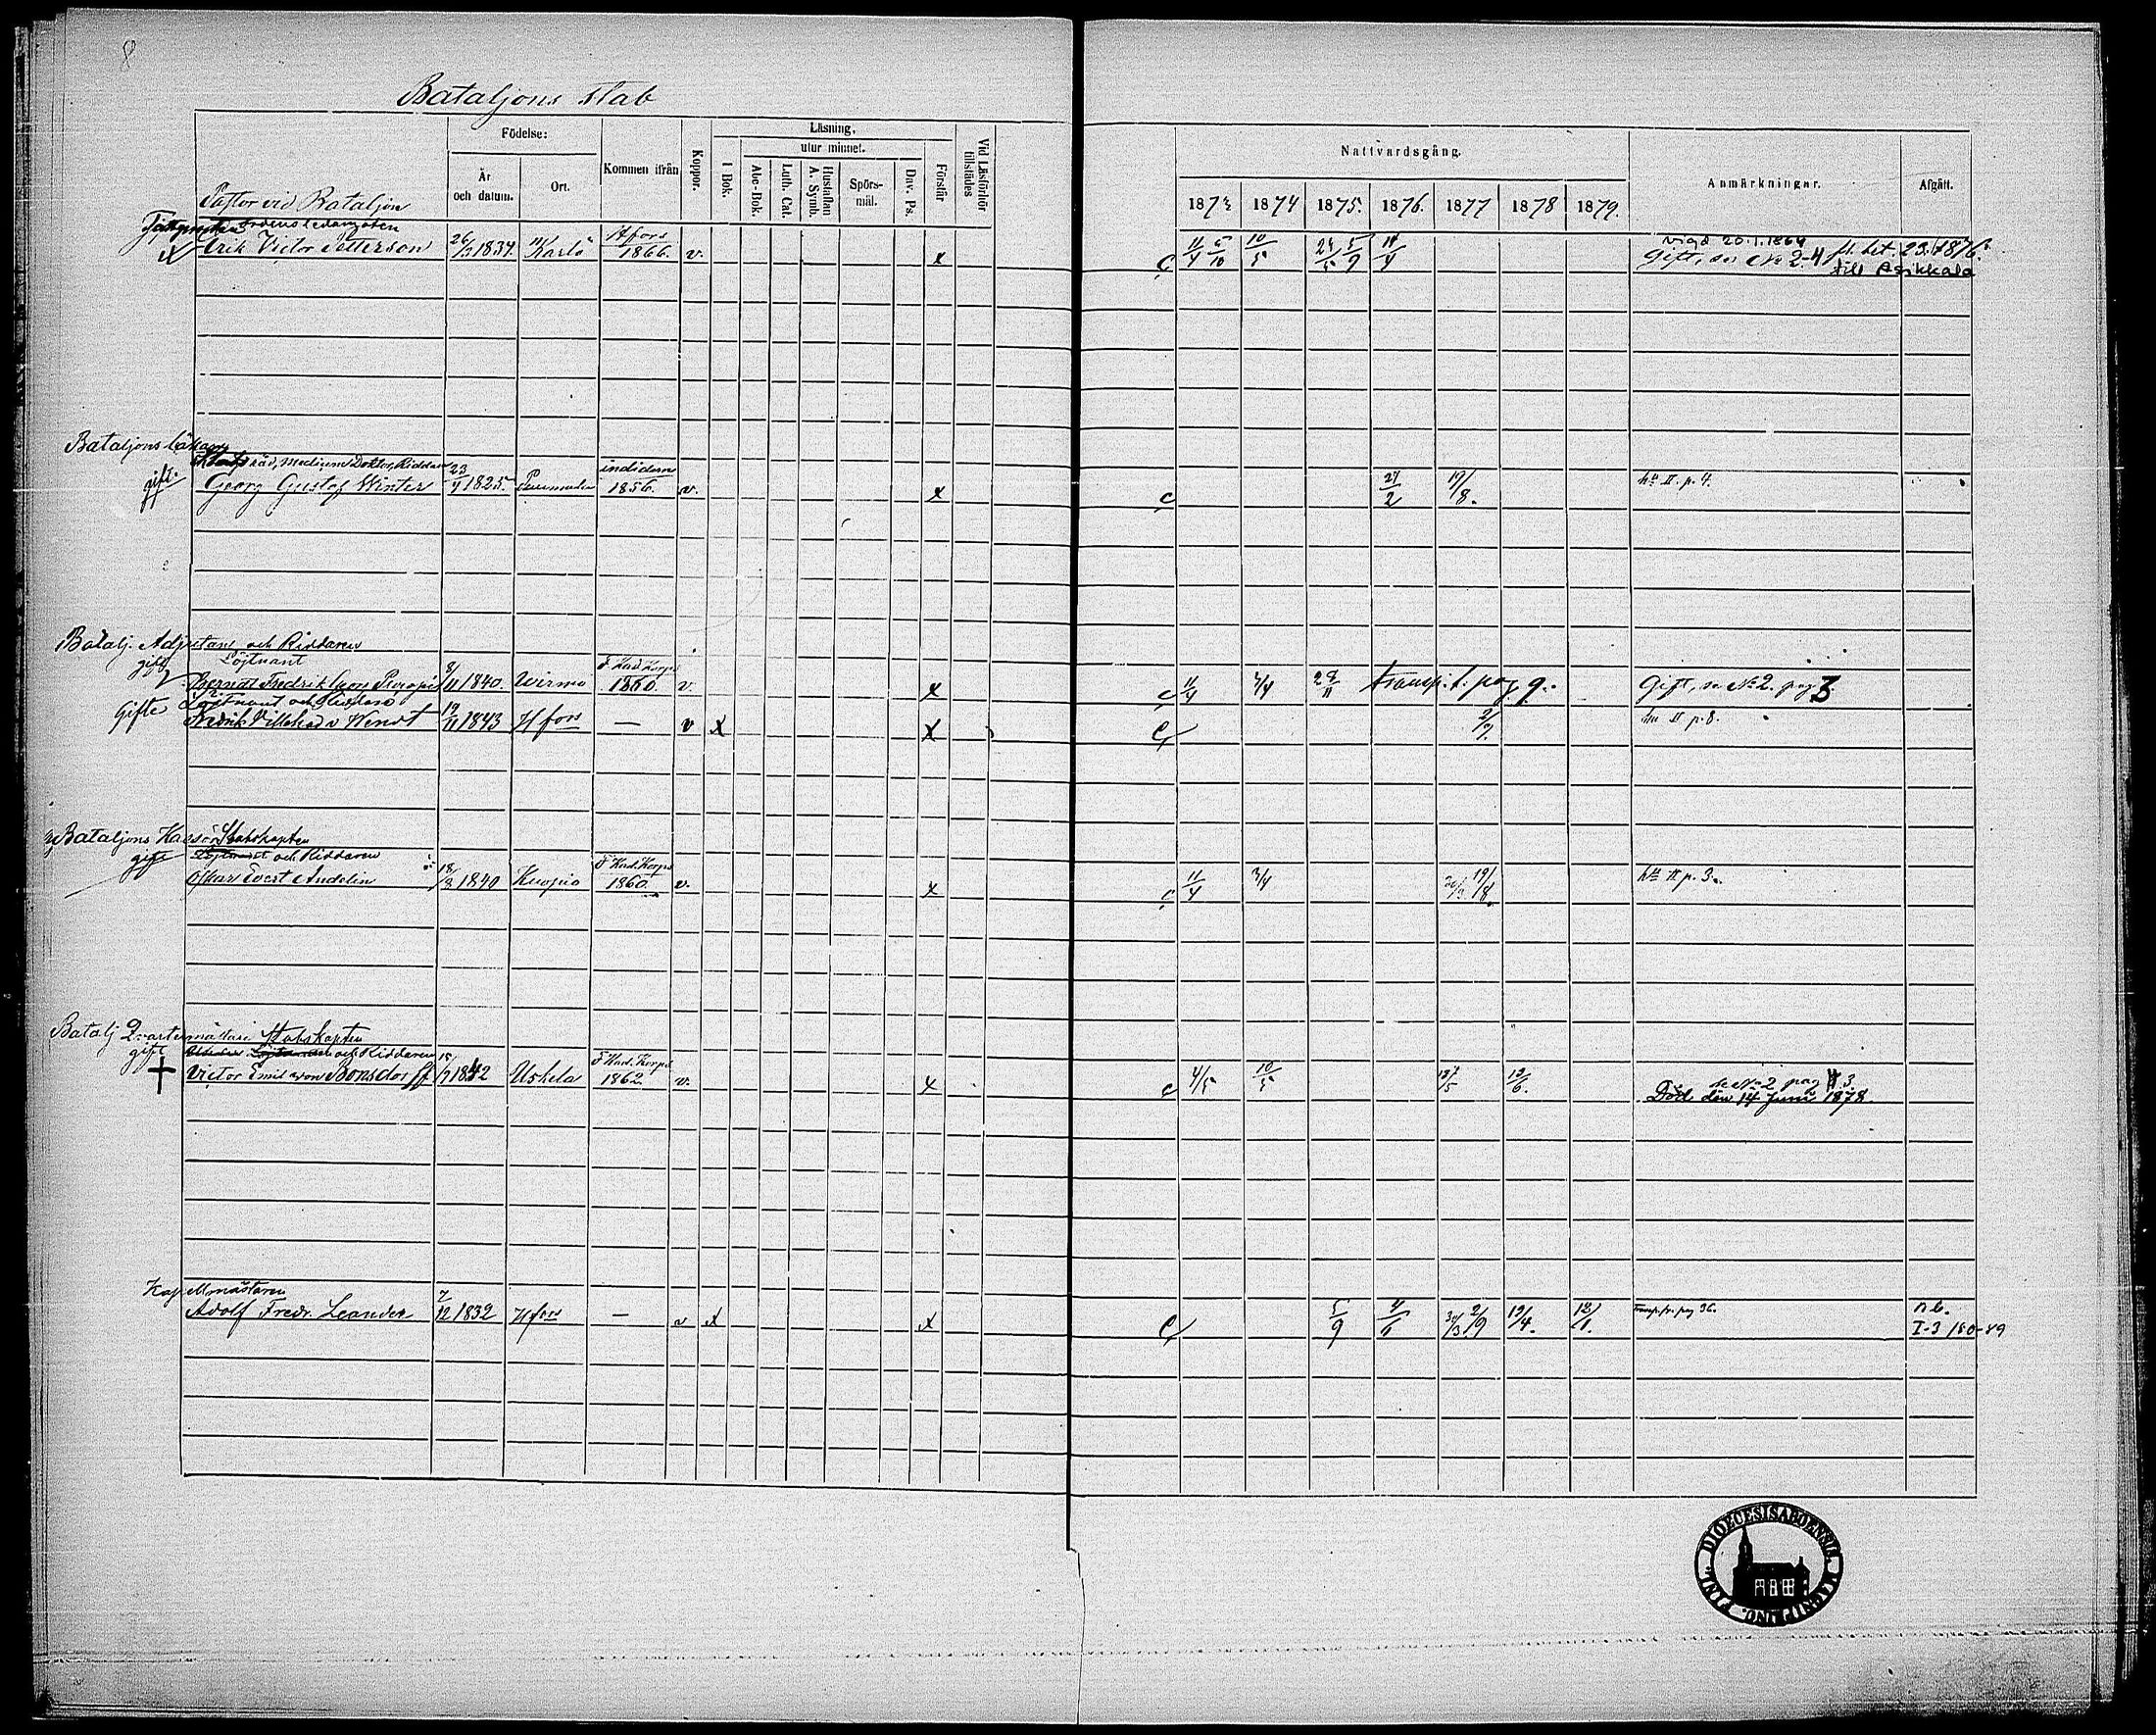 8
Bataljons Stab
Födelse:
År och datum.
Ort.
Kommen ifrån
Koppor.
Läsning.
I Bok.
utur minnet.
Abc-Bok.
Luth. Cat.
Hustaflan A. Symb.
Spörs-mål.
Dav. Ps.
Förstår
Vid Läsförhör tillstädes
Nattvardsgång.
1873 1874 1875. 1876. 1877 1878 1879.
Anmärkningar.
Afgått.
Pastor vid Bataljon
Ordensledamoten Hfors vigd 20.1.1864
Erik Victor Petterson 26/3 1834. Karlö 1866. v. x C 11/4 5/10 10/5 24/5 5/9 14/4 Gift, se No 2-4 fl. bet. 23. 1876.
till Asikkala
Bataljons läkare
råd, Medicine Doktor, Riddaren
gift. Georg Gustaf Winter 23/4 1825. 1856. v. x C 27/2 19/8. II. p. 4.
Batalj. Adjutant och Riddaren
gift Löjtnant F. Kad. Korps
Berndt Fredrik 8/11 1840. Wirmo 1860. v. x C 11/4 3/4 28/11 transp. t. pag. 9. Gift, se No 2. pag 3
Gifte Löjtnant och
Fredrik Villehad v Wendt 19/11 1843 Hfors — v x x C 2/9. II p. 8.
Bataljons Stabskapten
gift Löjtnant och Riddaren F. Kad. Korps
Oskar Evert Andelin 18/3 1840 Kuopio 1860. v. x C 11/4 3/4 19/8. II p. 3.
Batalj Qvartermästare Stabskapten
gift och Riddaren F. Kad. Korps
Victor Emil von Bonsdorff 15/7 1842 Uskela 1862. v. x C 4/5 10/5 13/6. se No 2 pag 3
Död den 14 Juni 1878.
Kapellmästaren
Adolf Fredr. Leander 7/12 1832 Hfors — v x x C 5/9 30/3 2/9 19/4. 12/1. Transp. fr. pag 36. n.b.
I-3 180-89
DIOECESIS ABOENSIS